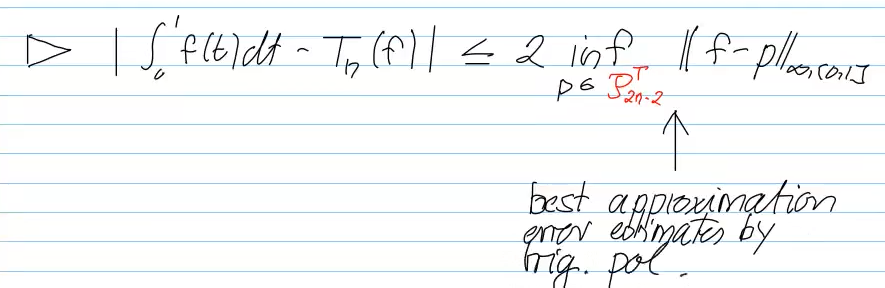 ▷ | ∫₀¹ f(t)dt - Tₙ(f) | ≤ 2 inf_{p∈𝒫^T_{2n-2}} ‖ f-p‖_{∞,[0,1]}
↑
best approximation
error estimates by
trig. pol.